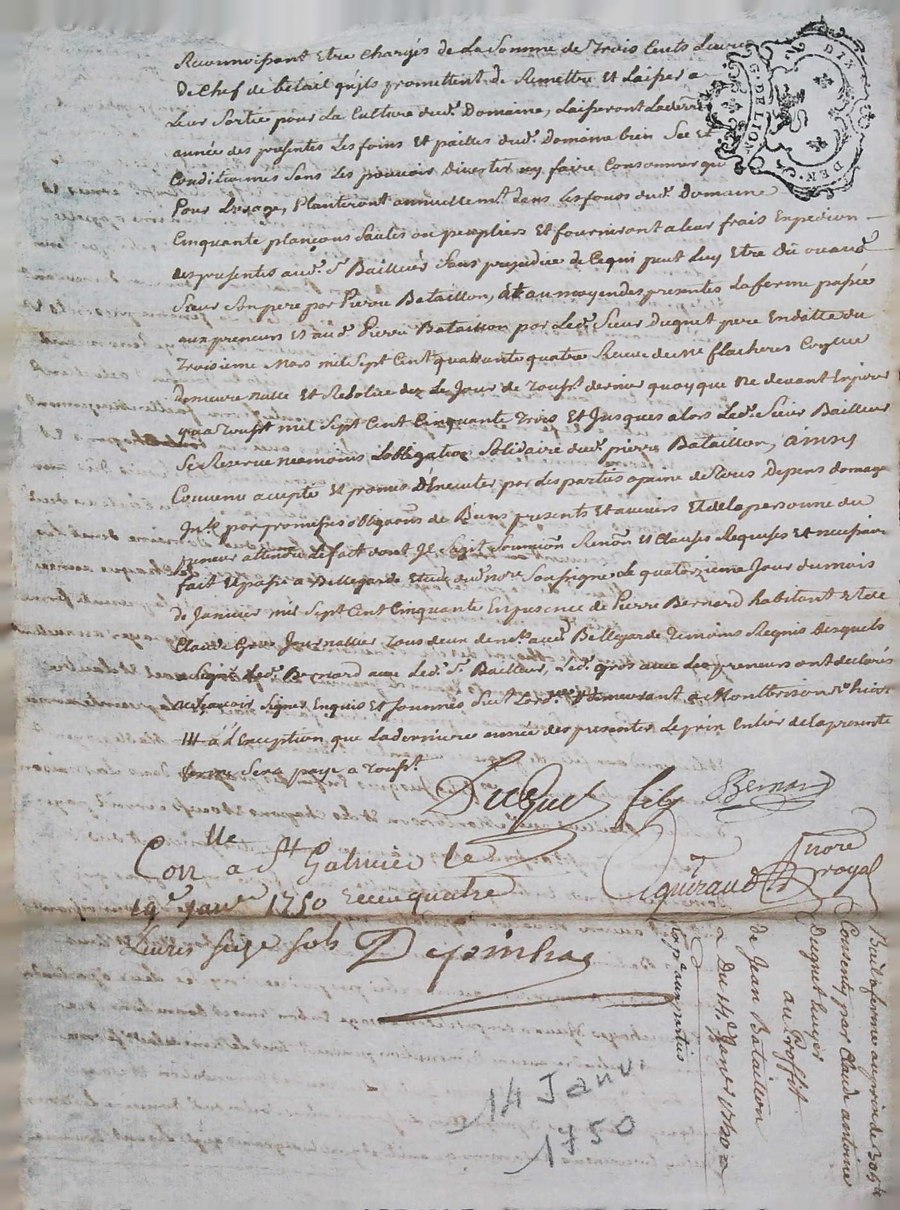 Reconnoissant Etre chargés de la Somme de Trois Cents Livres
de Chef de bétail qu'ils promettent de Remettre et Laisser a
Leur Sortie pour La Culture dud. Domaine, Laisseront La derniere
année des presentes Les foins et pailles dud. Domaine bien Sec Et
Conditionnés Sans Les pouvoir Divertir ny faire Consommer que
Pour Lusage, Planteront annuellemt. dans Les fonds dud. Domaine
Cinquante plançons Saules ou peupliers Et fourniront a leur frais Expedion
des presentes aud. Sr. Bailleur Sans prejudice de Ce qui peut Luy Etre dû ou aud.
Sieur Son pere par Pierre Bataillon, et au moyen des presentes La ferme passée
aux preneurs Et aud. Pierre Bataillon par Led. Sieur Duguet pere En datte du
Troisieme Mars mil Sept Cent quarante quatre Reçue du me flacheres
demeure nulle Et Resolüe dez Le Jour de Toust. dernier quoyque Ne devant Expirer
qu'a Toust. mil Sept Cent Cinquante Trois Et Jusques a lors Led. Sieur Bailleur
Se Reserve neamoins L'obligation Solidaire dud. pierre Bataillon, ainsy
Convenu accepté Et promis D'Executer par Les parties a peine de Tous Depens domage
Intt. par promesses obligaons de Biens presents Et avenirs Et de la personne du
preneur attendu Le fait dont Il Sagit Soumion Renon Et Clauses Requises Et necessaires
fait Et passé a Bellegarde Etude du nore Soussigné Le quatorzieme Jour du mois
de Janvier mil Sept Cent Cinquante En presence de Pierre Bernard habitant Et de
Claude Journallier Tous deux de Bellegarde Temoins Requis Desquels
a Signé Led. Bernard avec Led. Sr. Bailleur, Led. gros avec Les preneurs ont declarés
ne Sçavoir Signer Enquis Et Sommés demeurant a Montbrison
a L'Exception que La derniere année des presentes Le prix Entier de la presente
ferme Sera payé a Toust.
Duguet fils Bernard
Conlle a St Galmier le
19e janer 1750 Recu quatre
Livres seize sols Depinhac
Eguiraud nore royal
Bail a ferme au prix de 305tt
Consenty par Claude antoine
Duguet Luyer
au Proffit
de Jean Bataillon
Du 14e Janer 1750
Expé aux parties
14 Janv.
1750
G. DE LION
DIX DEN.